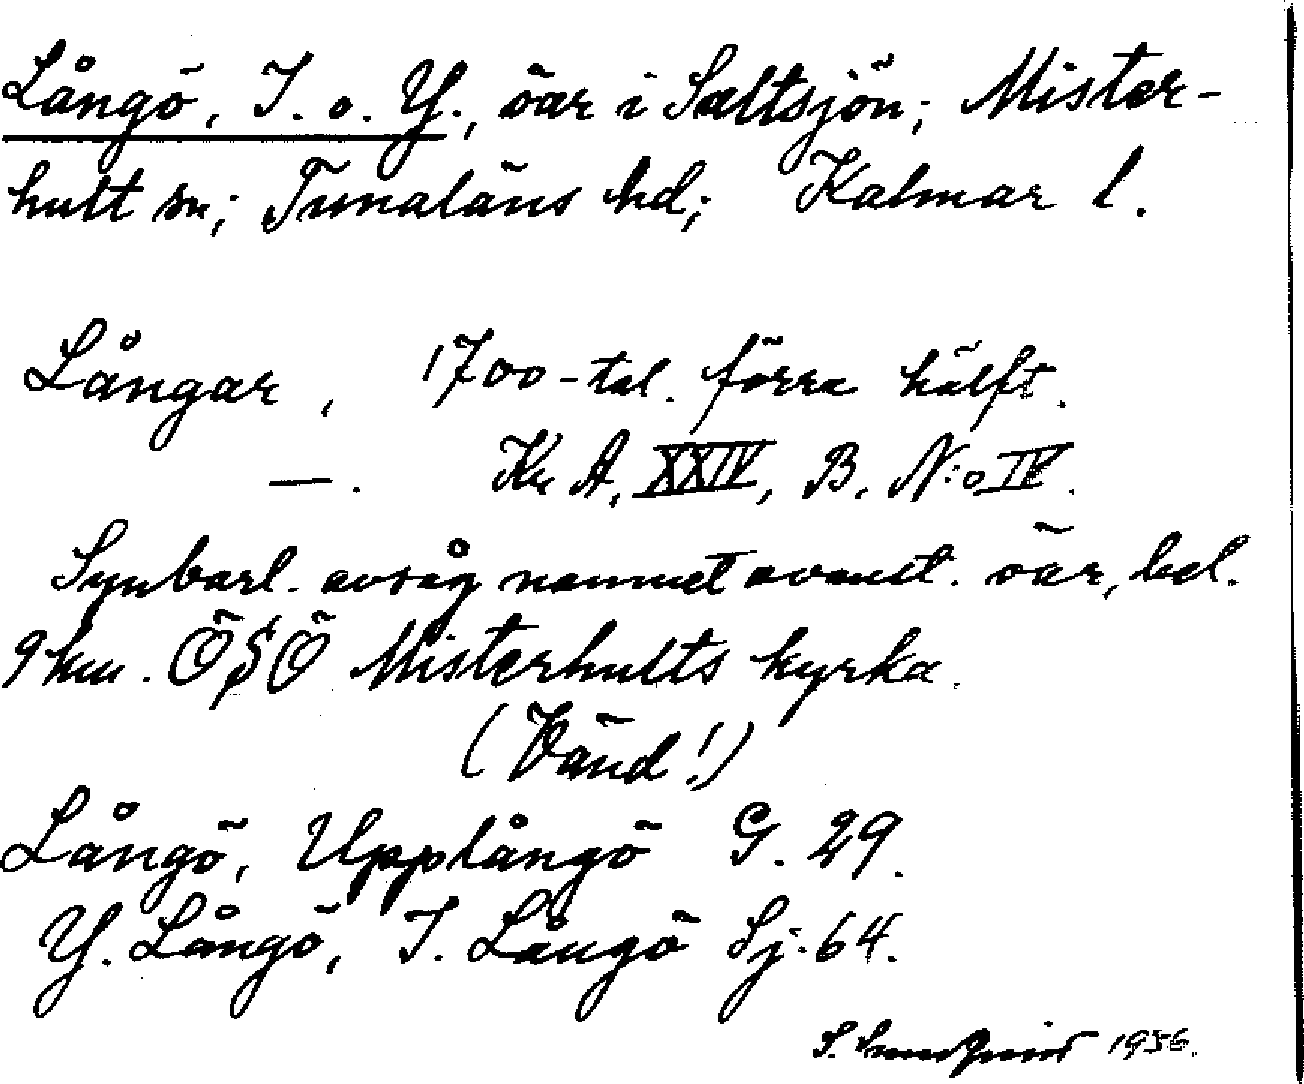 Långö, I. o. Y., öar i Saltsjön; Mister-
hult sn; Tunaläns hd; Kalmar l.
Långar, 1700-tal. förra hälft.
—. Kr A, XXIV, B. N:o IV.
Synbarl. avsåg namnet avent. öar, bel.
9 km. ÖSÖ Misterhults kyrka.
(Vänd!)
Långö, Upplångö G. 29.
Y. Långö, I. Långö Sj. 64.
S. 1956.